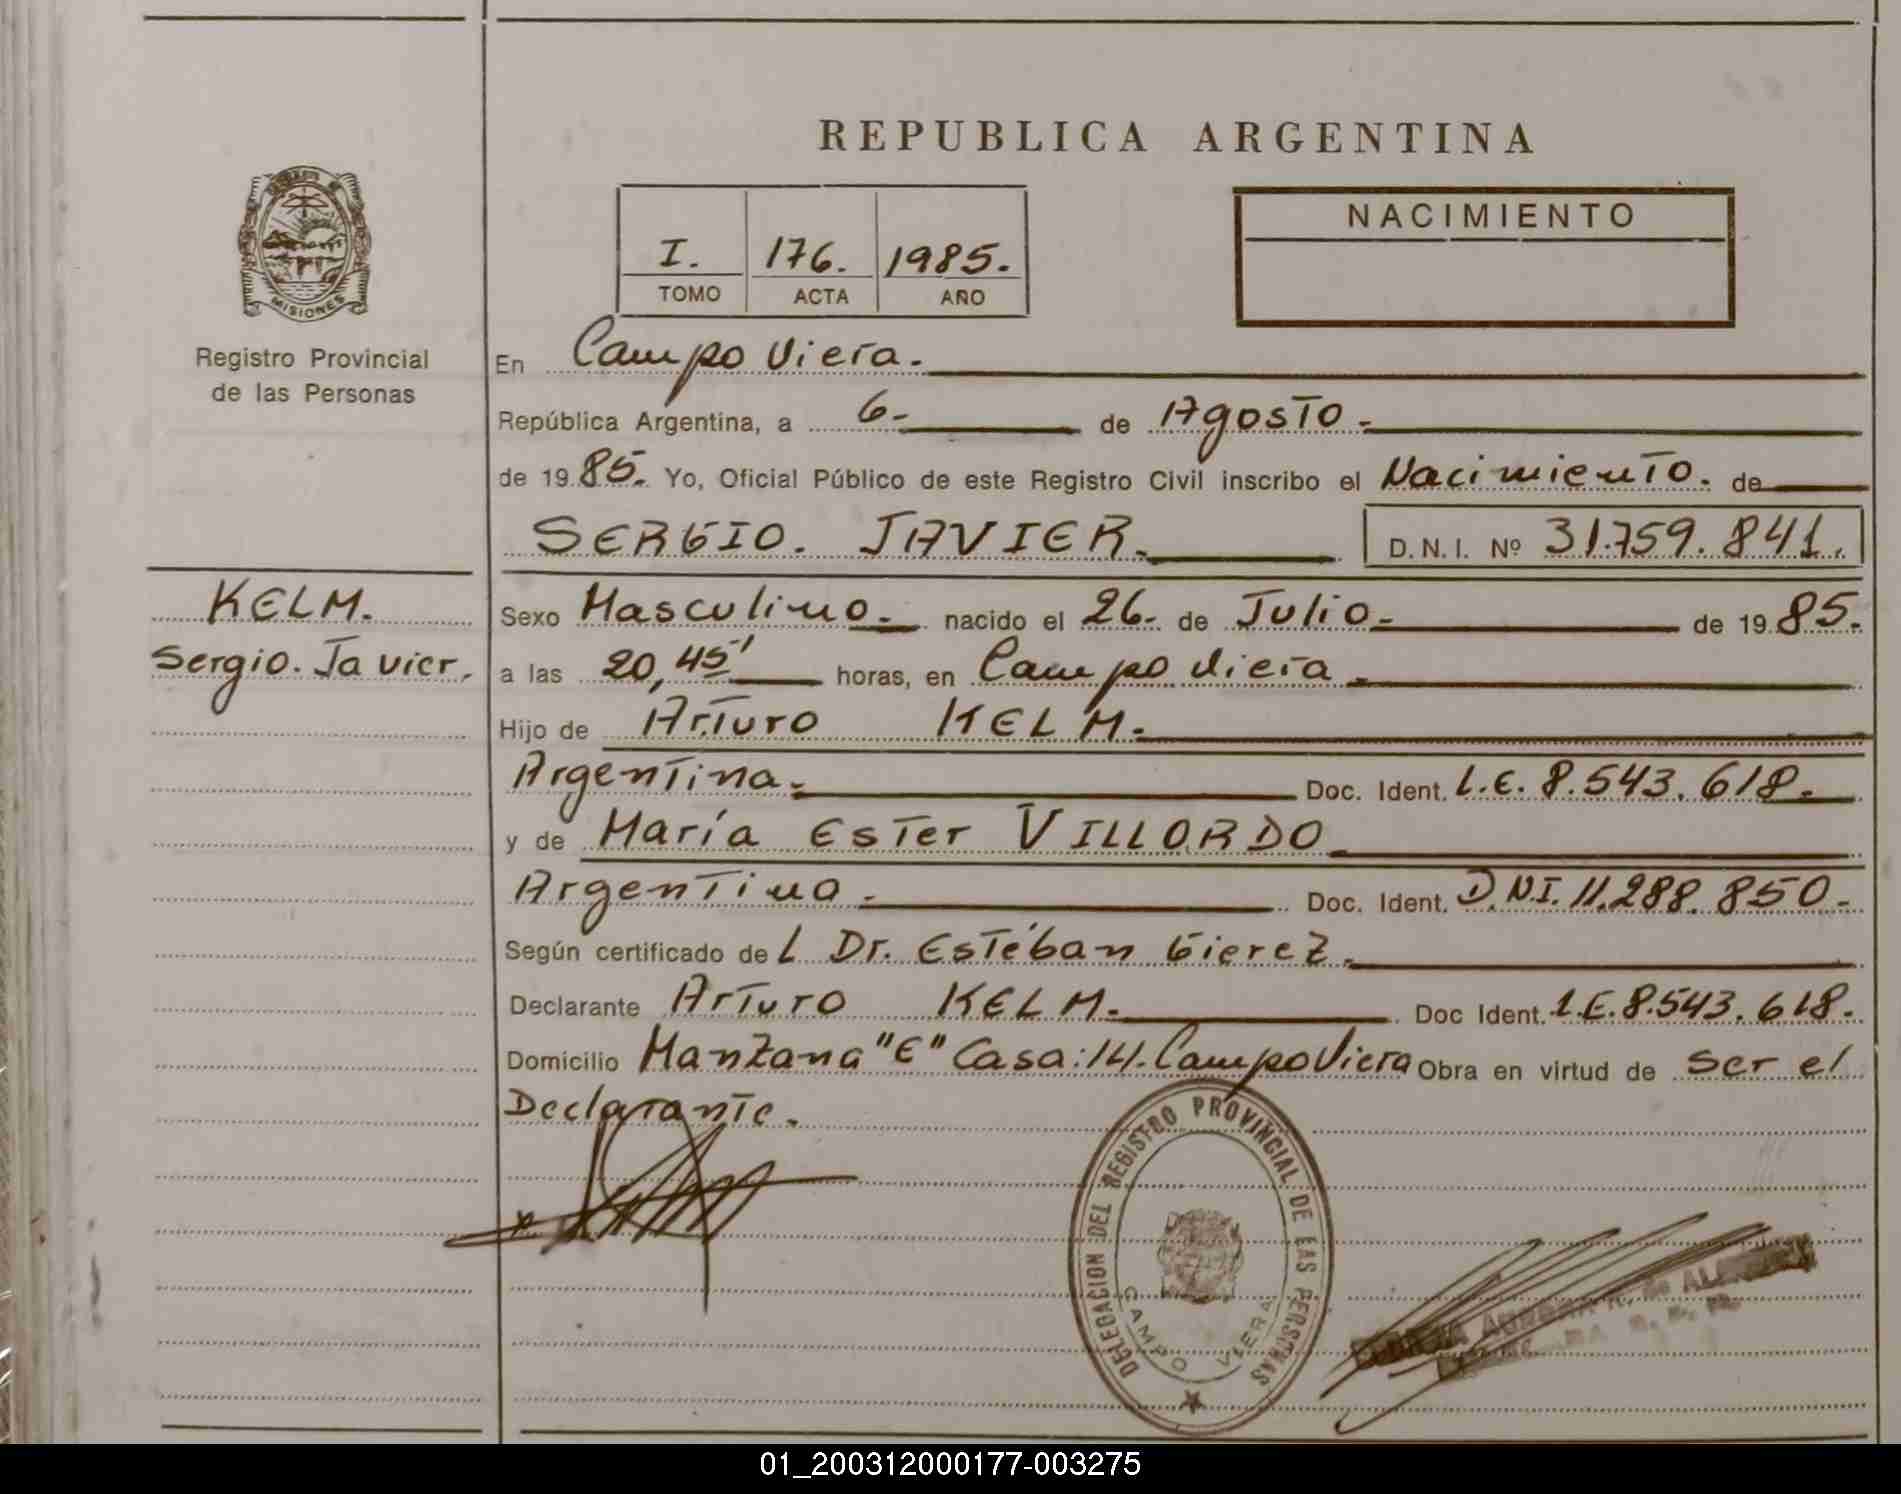 REPUBLICA ARGENTINA
MISIONES
Registro Provincial
de las Personas
I. 176. 1985.
TOMO ACTA AÑO
NACIMIENTO
En Campo Viera.
República Argentina, a 6- de Agosto.
de 1985. Yo, Oficial Público de este Registro Civil inscribo el Nacimiento. de
SERGIO. JAVIER. D.N.I. Nº 31.759.841.
KELM.
Sergio. Javier.
Sexo Masculino. nacido el 26- de Julio- de 1985.
a las 20,45' horas, en Campo Viera.
Hijo de Arturo KELM.
Argentina. Doc. Ident. L.E. 8.543.618.
y de María Ester VILLORDO
Argentina. Doc. Ident. D.N.I. 11.288.850-
Según certificado del Dr. Estéban Gierez.
Declarante Arturo KELM. Doc Ident. L.E. 8.543.618.
Domicilio Manzana "E" Casa: 14. Campo Viera Obra en virtud de ser el
Declarante.
DELEGACION DEL REGISTRO PROVINCIAL DE LAS PERSONAS
CAMPO VIERA
01_200312000177-003275